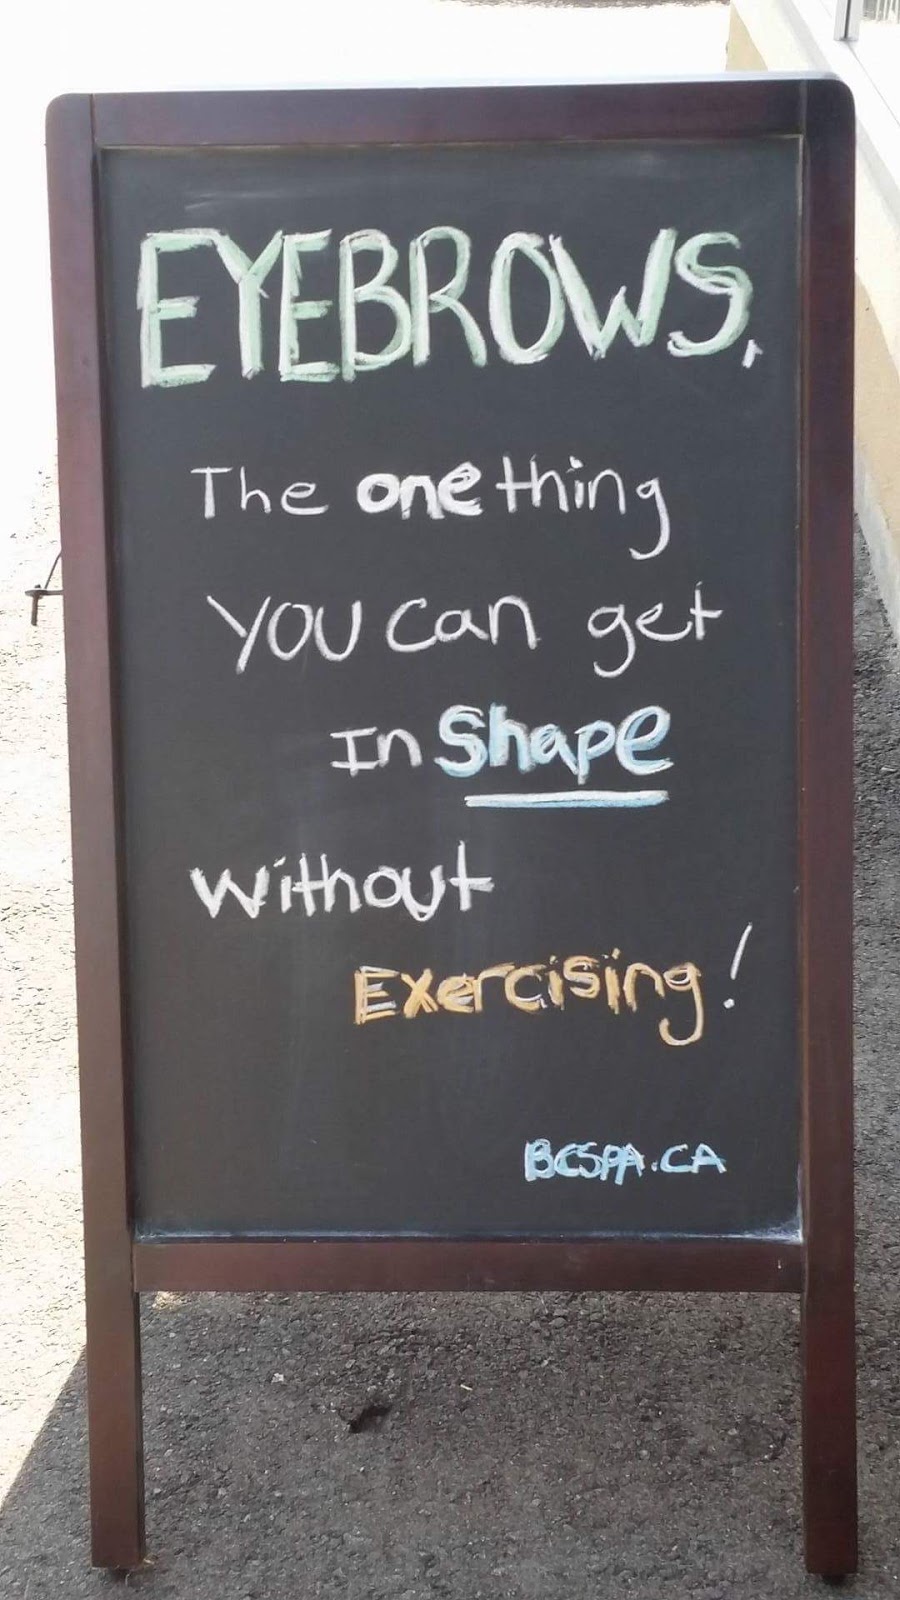 EYEBROWS.
The one thing
you can get
In Shape
without
Exercising!
BCSPA.CA